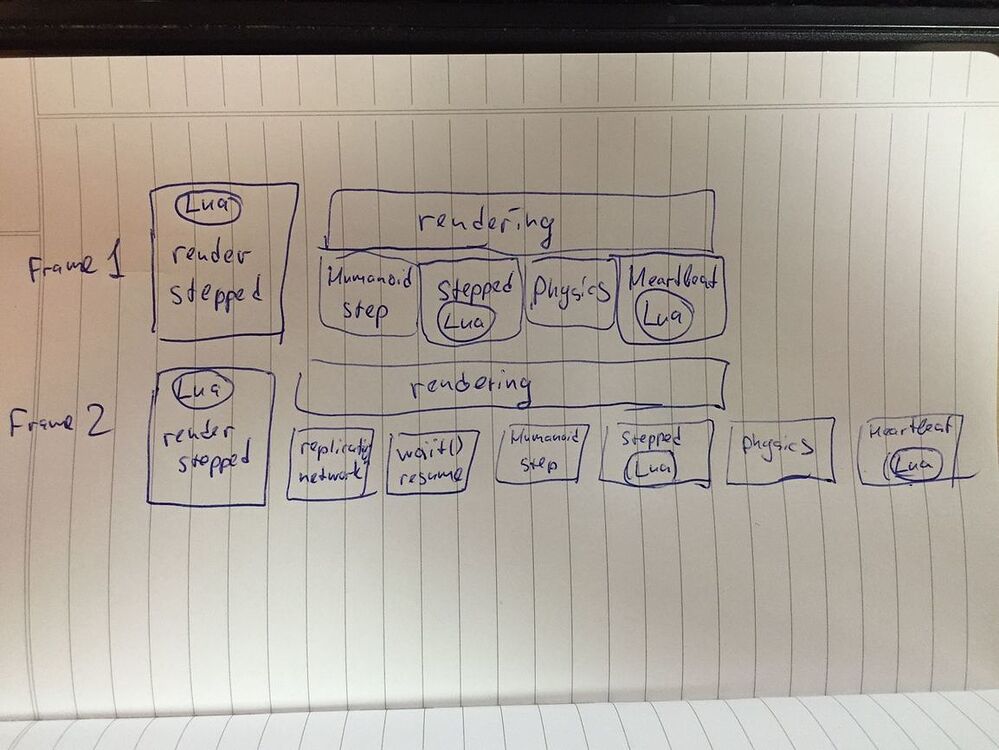 Frame 1
Lua
render
stepped
rendering
Humanoid
step
Stepped
Lua
physics
Heartbeat
Lua
Frame 2
Lua
render
stepped
rendering
network
wait()
resume
Humanoid
step
Stepped
Lua
physics
Heartbeat
Lua